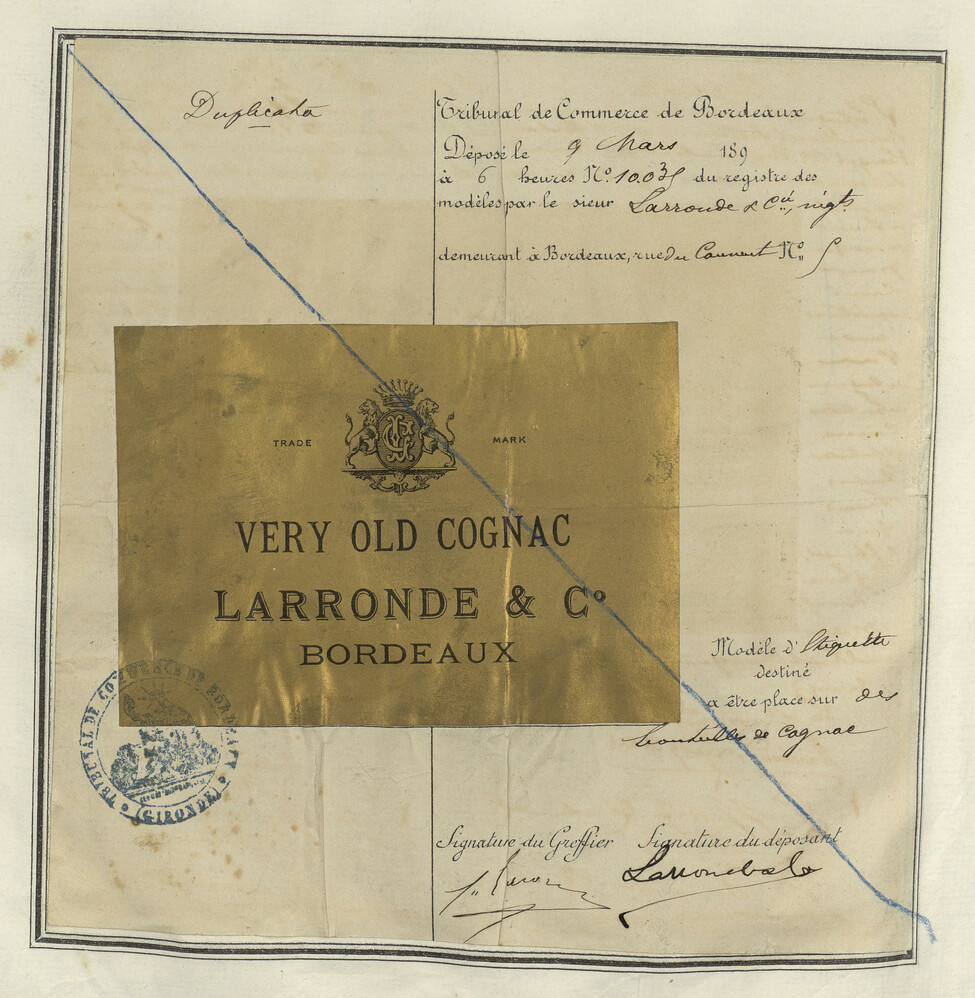 Duplicata
Tribunal de Commerce de Bordeaux
Déposé le 9 Mars 189
à 6 heures Nº 10.035 du registre des
modèles par le sieur Larronde & Cie, négts
demeurant à Bordeaux, rue du Couvent Nº 5
TRADE MARK
VERY OLD COGNAC
LARRONDE & Cº
BORDEAUX
Modèle d'Etiquette
destiné
a être place sur des
bouteilles de Cognac
TRIBUNAL DE COMMERCE DE BORDEAUX
(GIRONDE)
Signature du Greffier Signature du déposant